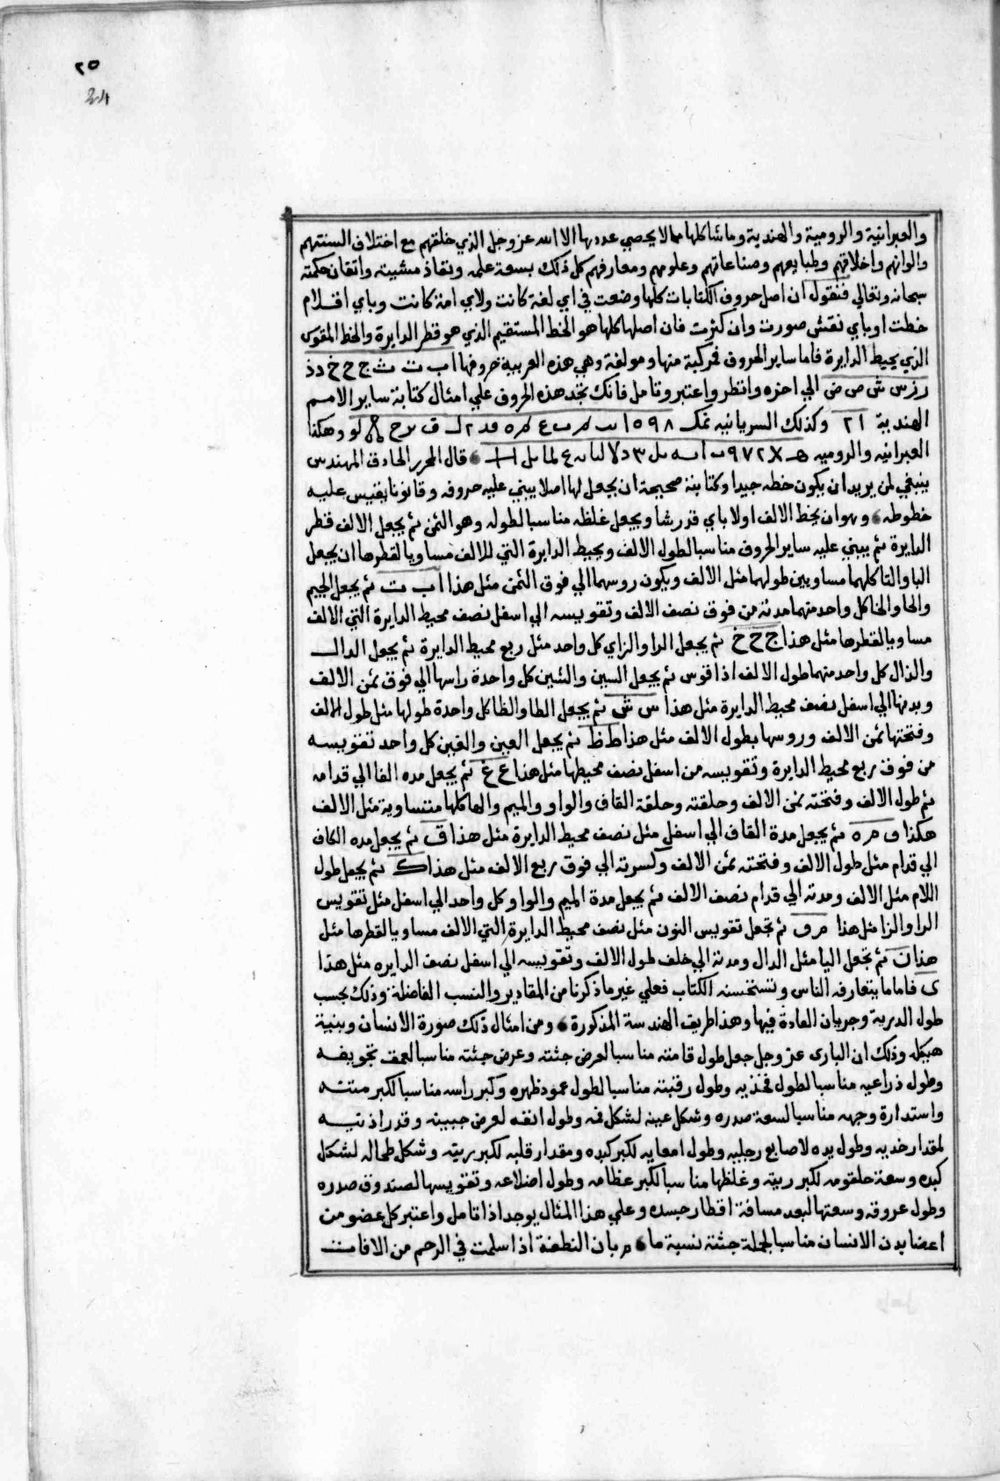 ٢٥
24
والعبرانية والرومية والهندية وما شاكلها مما لا يحصي عددها الا الله عز وجل الذي خلقهم مع اختلاف السنتهم
والوانهم واخلاقهم وطبايعهم وصناعاتهم وعلومهم ومعارفهم كل ذلك بسعة علمه ونفاذ مشيته واتقان حكمته
سبحانه وتعالي فنقول ان اصل حروف الكتابات كلها وضعت في اي لغة كانت ولاي امة كانت وباي اقلام
خطت او باي نقش صورت وان كثرت فان اصلها كلها هو الخط المستقيم الذي هو قطر الدايرة والخط المقوس
الذي يحيط الدايرة فاما ساير الحروف فمركبة منها ومولفة وهي هذه العربية حروفها ا ب ت ث ج ح خ د ذ
ر ز س ش ص ض الي اخره وانتظر واعتبر وتامل فانك تجد هذه الحروف علي امثال كتابة ساير الامم
الهندية ٢١ وكذلك السريانيه وهكذا
العبرانيه والروميه قال المحرر الحاذق المهندس
ينبغي لمن يريد ان يكون خطه جيدا وكتابته صحيحة ان يجعل لها اصلا يبني عليه حروفه وقانونا يقيس عليه
خطوطه وهو ان يخط الالف اولا باي قدر شا ويجعل غلظه مناسبا لطوله وهو الثمن ثم يجعل الالف قطر
الدايرة ثم يبني عليه ساير الحروف مناسبا لطول الالف ومحيط الدايرة التي للالف مساويا لقطرها ان يجعل
البا والتا كلهما مساويين طولهما مثل الالف ويكون روسهما الي فوق الثمن مثل هذا ا ب ت ثم يجعل الجيم
والحا والخا كل واحد منهما مدته من فوق نصف الالف وتقويسه الي اسفل نصف محيط الدايرة التي الالف
مساويا لقطرها مثل هذا ج ح خ ثم يجعل الرا والزاي كل واحد مثل ربع محيط الدايرة ثم يجعل الدال
والذال كل واحد منهما طول الالف اذا قوس ثم يجعل السين والشين كل واحدة راسها الي فوق ثمن الالف
وبدنها الي اسفل نصف محيط الدايرة مثل هذا س ش ثم يجعل الطا والظا كل واحدة طولها مثل طول الالف
وفتحتها ثمن الالف وروسها بطول الالف مثل هذا ط ظ ثم يجعل العين والغين كل واحد تقويسه
من فوق ربع محيط الدايرة وتقويسه من اسفل نصف محيطها مثل هذا ع غ ثم يجعل مده الفا الي قدامه
ثم طول الالف وفتحته ثمن الالف وحلقته وحلقة القاف والواو والميم والها كلها متساوية مثل الالف
هكذا ف م ه ثم يجعل مدة القاف الي اسفل مثل نصف محيط الدايرة مثل هذا ق ثم يجعل مده الكاف
الي قدام مثل طول الالف وفتحته ثمن الالف وكسرته الي فوق ربع الالف مثل هذا ك ثم يجعل طول
اللام مثل الالف ومدته الي قدام نصف الالف ثم يجعل مدة الميم والواو كل واحد الي اسفل مثل تقويس
الرا والزا مثل هذا م و ثم تجعل تقويس النون مثل نصف محيط الدايرة التي الالف مساويا لقطرها مثل
هذا ن ثم تجعل اليا مثل الدال ومدته الي خلف طول الالف وتقويسه الي اسفل نصف الدايره مثل هذا
ى فاما ما يتعارفه الناس ويستحسنه الكتاب فعلي غير ما ذكرنا من المقادير والنسب الفاضلة وذلك بحسب
طول الدربة وجريان العادة فيها وهذا طريق الهندسة المذكورة ومن امثال ذلك صورة الانسان وبنية
هيكله وذلك ان البارى عز وجل جعل طول قامته مناسبا لعرض جثته وعرض جثته مناسبا لعمق تجويفه
وطول ذراعيه مناسبا لطول فخذيه وطول رقبته مناسبا لطول عمود ظهره وكبر راسه مناسبا لكبر
واستدارة وجهه مناسبا لسعة صدره وشكل عينه لشكل فمه وطول انفه لعرض جبينه وقدر اذنيه
لمقدار خديه وطول يده لاصابع رجليه وطول امعايه لكبر كبده ومقدار قلبه لكبر ريته وشكل طحاله لشكل
كبده وسعة حلقومه لكبر ريته وغلظها مناسبا لكبر عظامه وطول اضلاعه وتقويسها لصندوق صدره
وطول عروقه وسعتها لبعد مسافة اقطار جسده وعلي هذا المثال يوجد اذا تامل واعتبر كل عضو من
اعضا بدن الانسان مناسبا لجملة جثته نسبة ما بان النطفة اذا سلمت في الرحم من الافات